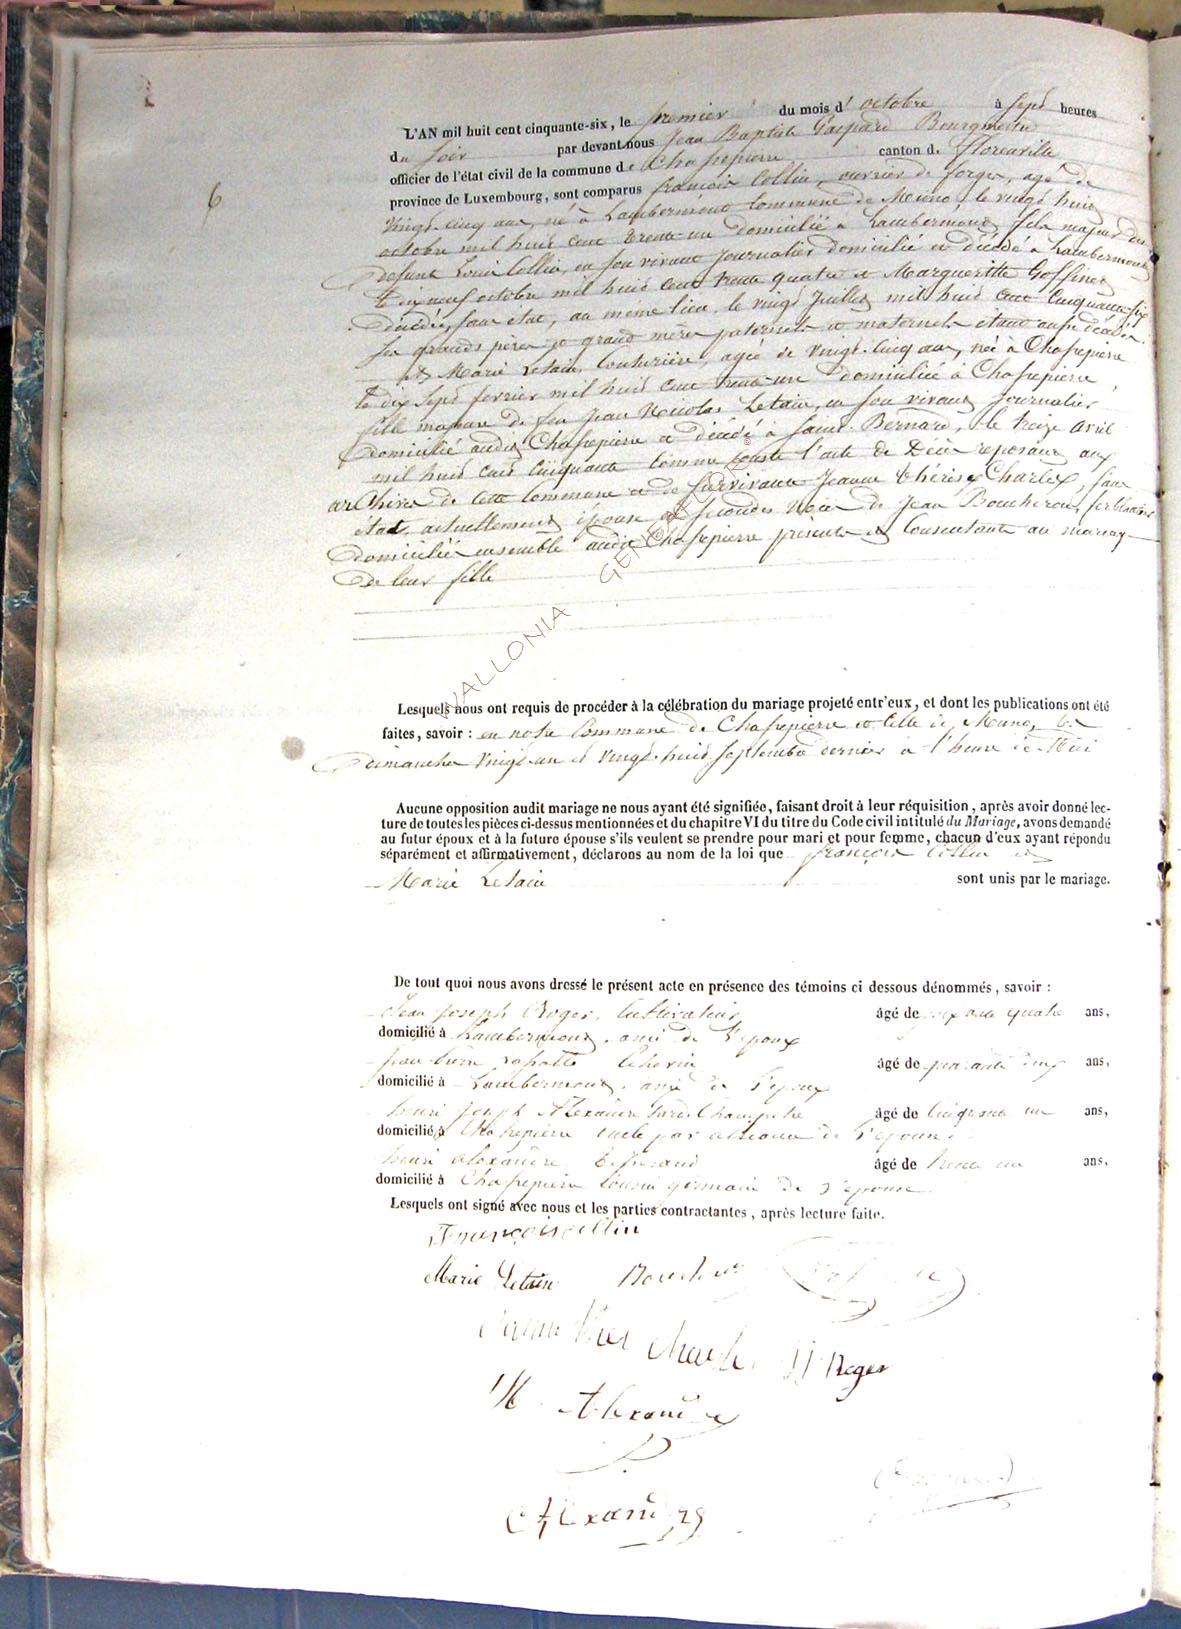 6
L'AN mil huit cent cinquante-six, le premier du mois d'octobre à sept heures
du soir par devant nous Jean Baptiste Gaspard Bourgmestre
officier de l'état civil de la commune de Chassepierre canton de Florenville
province de Luxembourg, sont comparus françois Collin, ouvrier de forges, agé de
vingt-cinq ans, né à Lambermont Commune de Muno, le vingt huit
octobre mil huit cent trente-un domicilié à Lambermont, fils majeur du
defunt Louis Collin, en son vivant journalier domicilié et décédé à Lambermont
le dix neuf octobre mil huit cent trente quatre et Marguerite Goffinet
décédée, sans etat, au même lieu, le vingt Juillet mil huit cent Cinquante-six
ses grands peres et grand mères paternels et maternels étant aussi décédés.
et Marie Letain, Couturière, agée de vingt-cinq ans, née à Chassepierre
le dix sept fevrier mil huit cent trente-un domiciliée à Chassepierre,
fille majeure de feu Jean Nicolas Letain, en son vivant journalier
domicilié audit Chassepierre et décédé à Saint-Bernard, le treize avril
mil huit cent Cinquante Comme conste l'acte de Décès reposant aux
archives de cette Commune et de survivante Jeanne Thérèse Charles, sans
état, actuellement épouse en secondes Noces de Jean Boucheron, ferblantier
domiciliés ensemble audit Chassepierre présents et Consentants au mariage
de leur fille
WALLONIA GENEALOGIE
Lesquels nous ont requis de procéder à la célébration du mariage projeté entr'eux, et dont les publications ont été
faites, savoir : en notre Commune de Chassepierre et Celle de Muno, les
dimanches vingt-un et vingt-huit septembre dernier à l'heure de Midi
Aucune opposition audit mariage ne nous ayant été signifiée, faisant droit à leur réquisition, après avoir donné lec-
ture de toutes les pièces ci-dessus mentionnées et du chapitre VI du titre du Code civil intitulé du Mariage, avons demandé
au futur époux et à la future épouse s'ils veulent se prendre pour mari et pour femme, chacun d'eux ayant répondu
séparément et affirmativement, déclarons au nom de la loi que françois Collin et
Marie Letain sont unis par le mariage.
De tout quoi nous avons dressé le présent acte en présence des témoins ci dessous dénommés, savoir :
Jean Joseph Roger, Cultivateur âgé de quatre ans,
domicilié à Lambermont, ami de l'époux
Jean âgé de quarante cinq ans,
domicilié à Lambermont, ami de l'époux
henri Joseph Alexandre Garde Champêtre âgé de Cinquante un ans,
domicilié à Chassepierre oncle par alliance de l'épouse
henri alexandre âgé de trente un ans,
domicilié à Chassepierre Cousin germain de l'épouse
Lesquels ont signé avec nous et les parties contractantes, après lecture faite.
François Collin
Marie Letain Boucheron
Charles JJ Roger
H. Alexandre
Alexandre